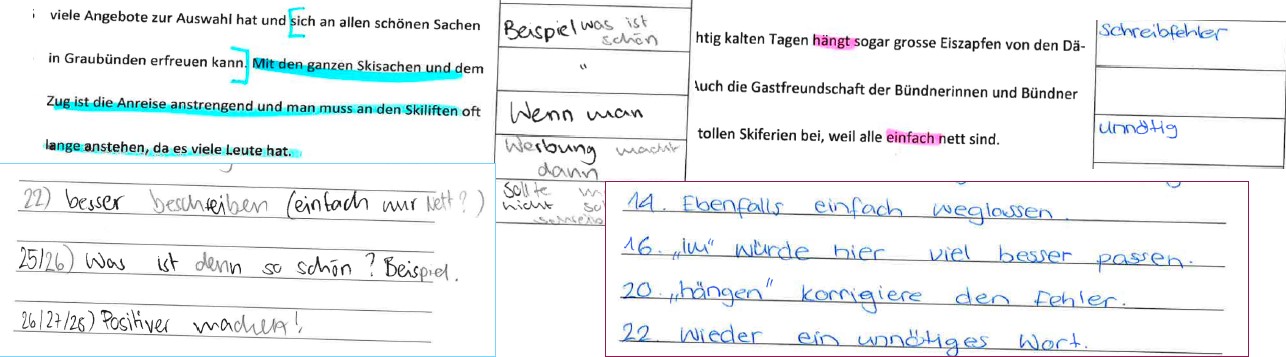 viele Angebote zur Auswahl hat und sich an allen schönen Sachen
in Graubünden erfreuen kann. Mit den ganzen Skisachen und dem
Zug ist die Anreise anstrengend und man muss an den Skiliften oft
lange anstehen, da es viele Leute hat.
Beispiel was ist
schön
"
Wenn man
Werbung macht
dann
sollte
nicht
htig kalten Tagen hängt sogar grosse Eiszapfen von den Dä-
Auch die Gastfreundschaft der Bündnerinnen und Bündner
tollen Skiferien bei, weil alle einfach nett sind.
Schreibfehler
unnötig
22) besser beschreiben (einfach nur Nett?)
25/26) Was ist denn so schön? Beispiel.
26/27/28) Positiver machen!
14. Ebenfalls einfach weglassen.
16. „im" würde hier viel besser passen.
20. „hängen" korrigiere den Fehler.
22. Wieder ein unnötiges Wort.